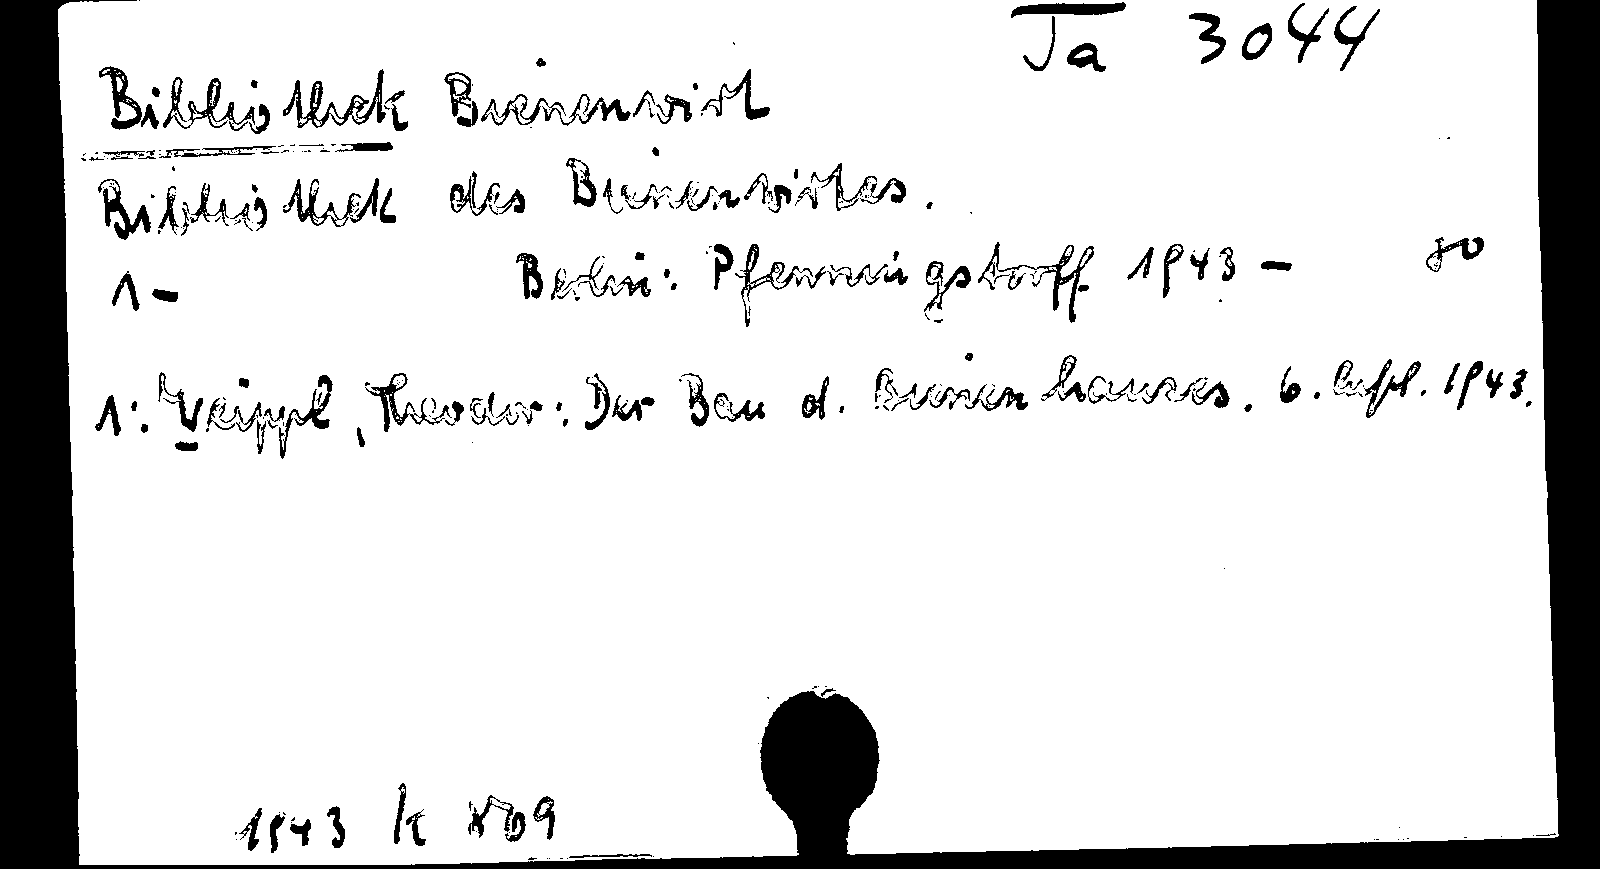 Ja 3044
Bibliothek Bienenwirt
Bibliothek des Bienenwirtes.
1- Berlin: Pfenningstorff 1943- 8°
1: Weippl, Theodor: Der Bau d. Bienenhauses. 6. Aufl. 1943.
1943 K